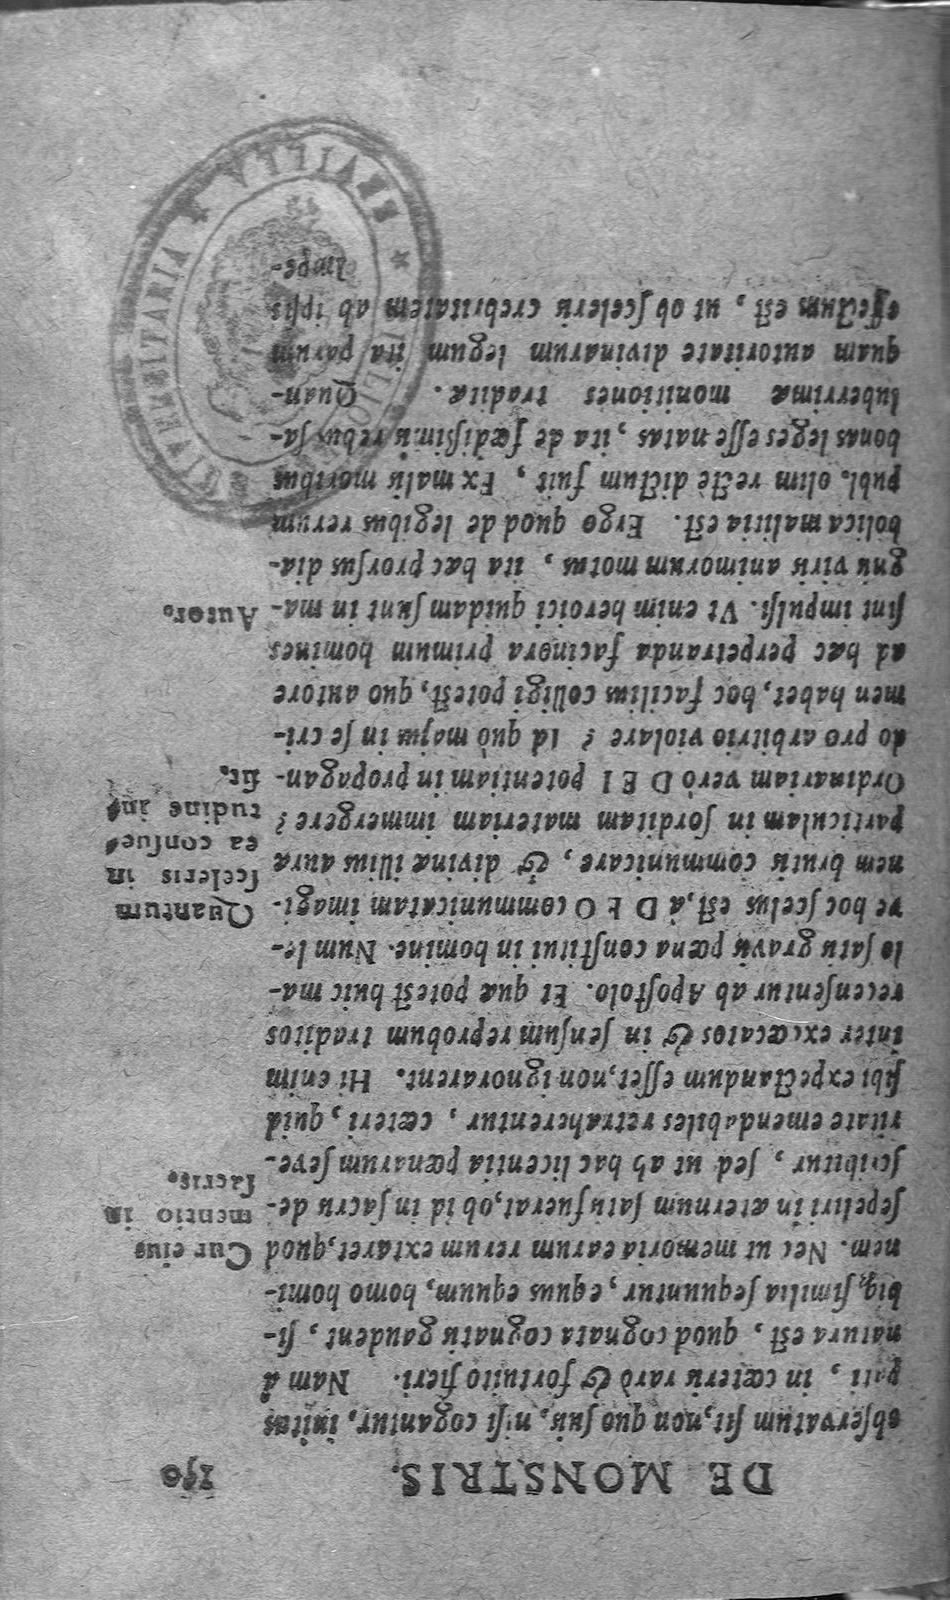 DE MONSTRIS. 150
observatum sit, non quo suis, nisi cogantur, invitas
pati, in cæteris rarò & fortuito fieri. Nam à
natura est, quod cognata cognatis gaudent, si-
biq; similia sequuntur, equus equum, homo homi-
nem. Nec ut memoria earum rerum extaret, quod
sepeliri in æternum satis fuerat, ob id in sacris de-
scribitur, sed ut ab hac licentia pœnarum seve-
ritate emendabiles retraherentur, cæteri, quid
sibi expectandum esset, non ignorarent. Hi enim
inter excæcatos & in sensum reprobum traditos
recensentur ab Apostolo. Et quæ potest huic ma-
lo satis gravis pœna constitui in homine. Num le-
ve hoc scelus est, à DEO communicatam imagi-
nem brutis communicare, & divinæ illius auræ
particulam in sorditam materiam immergere?
Ordinariam verò DEI potentiam in propagan-
do pro arbitrio violare? Id quò majus in se cri-
men habet, hoc facilius colligi potest, quo autore
ad hæc perpetranda facinora primum homines
sint impulsi. Vt enim heroici quidam sunt in ma-
gnis viris animorum motus, ita hæc prorsus dia-
bolica malitia est. Ergo quod de legibus rerum
publ. olim rectè dictum fuit, Ex malis moribus
bonas leges esse natas, ita de fœdissimis rebus sa-
luberrimæ monitiones traditæ. Quan-
quam autoritate divinarum legum ita parum
effectum est, ut ob sceleris crebritatem ab ipsis
Impe-
Cur eius
mentio in
sacris.
Quantum
sceleris in
ea consue-
tudine in-
sit.
Autor.
UNIVERSITARIA ★ SEVILLA ★